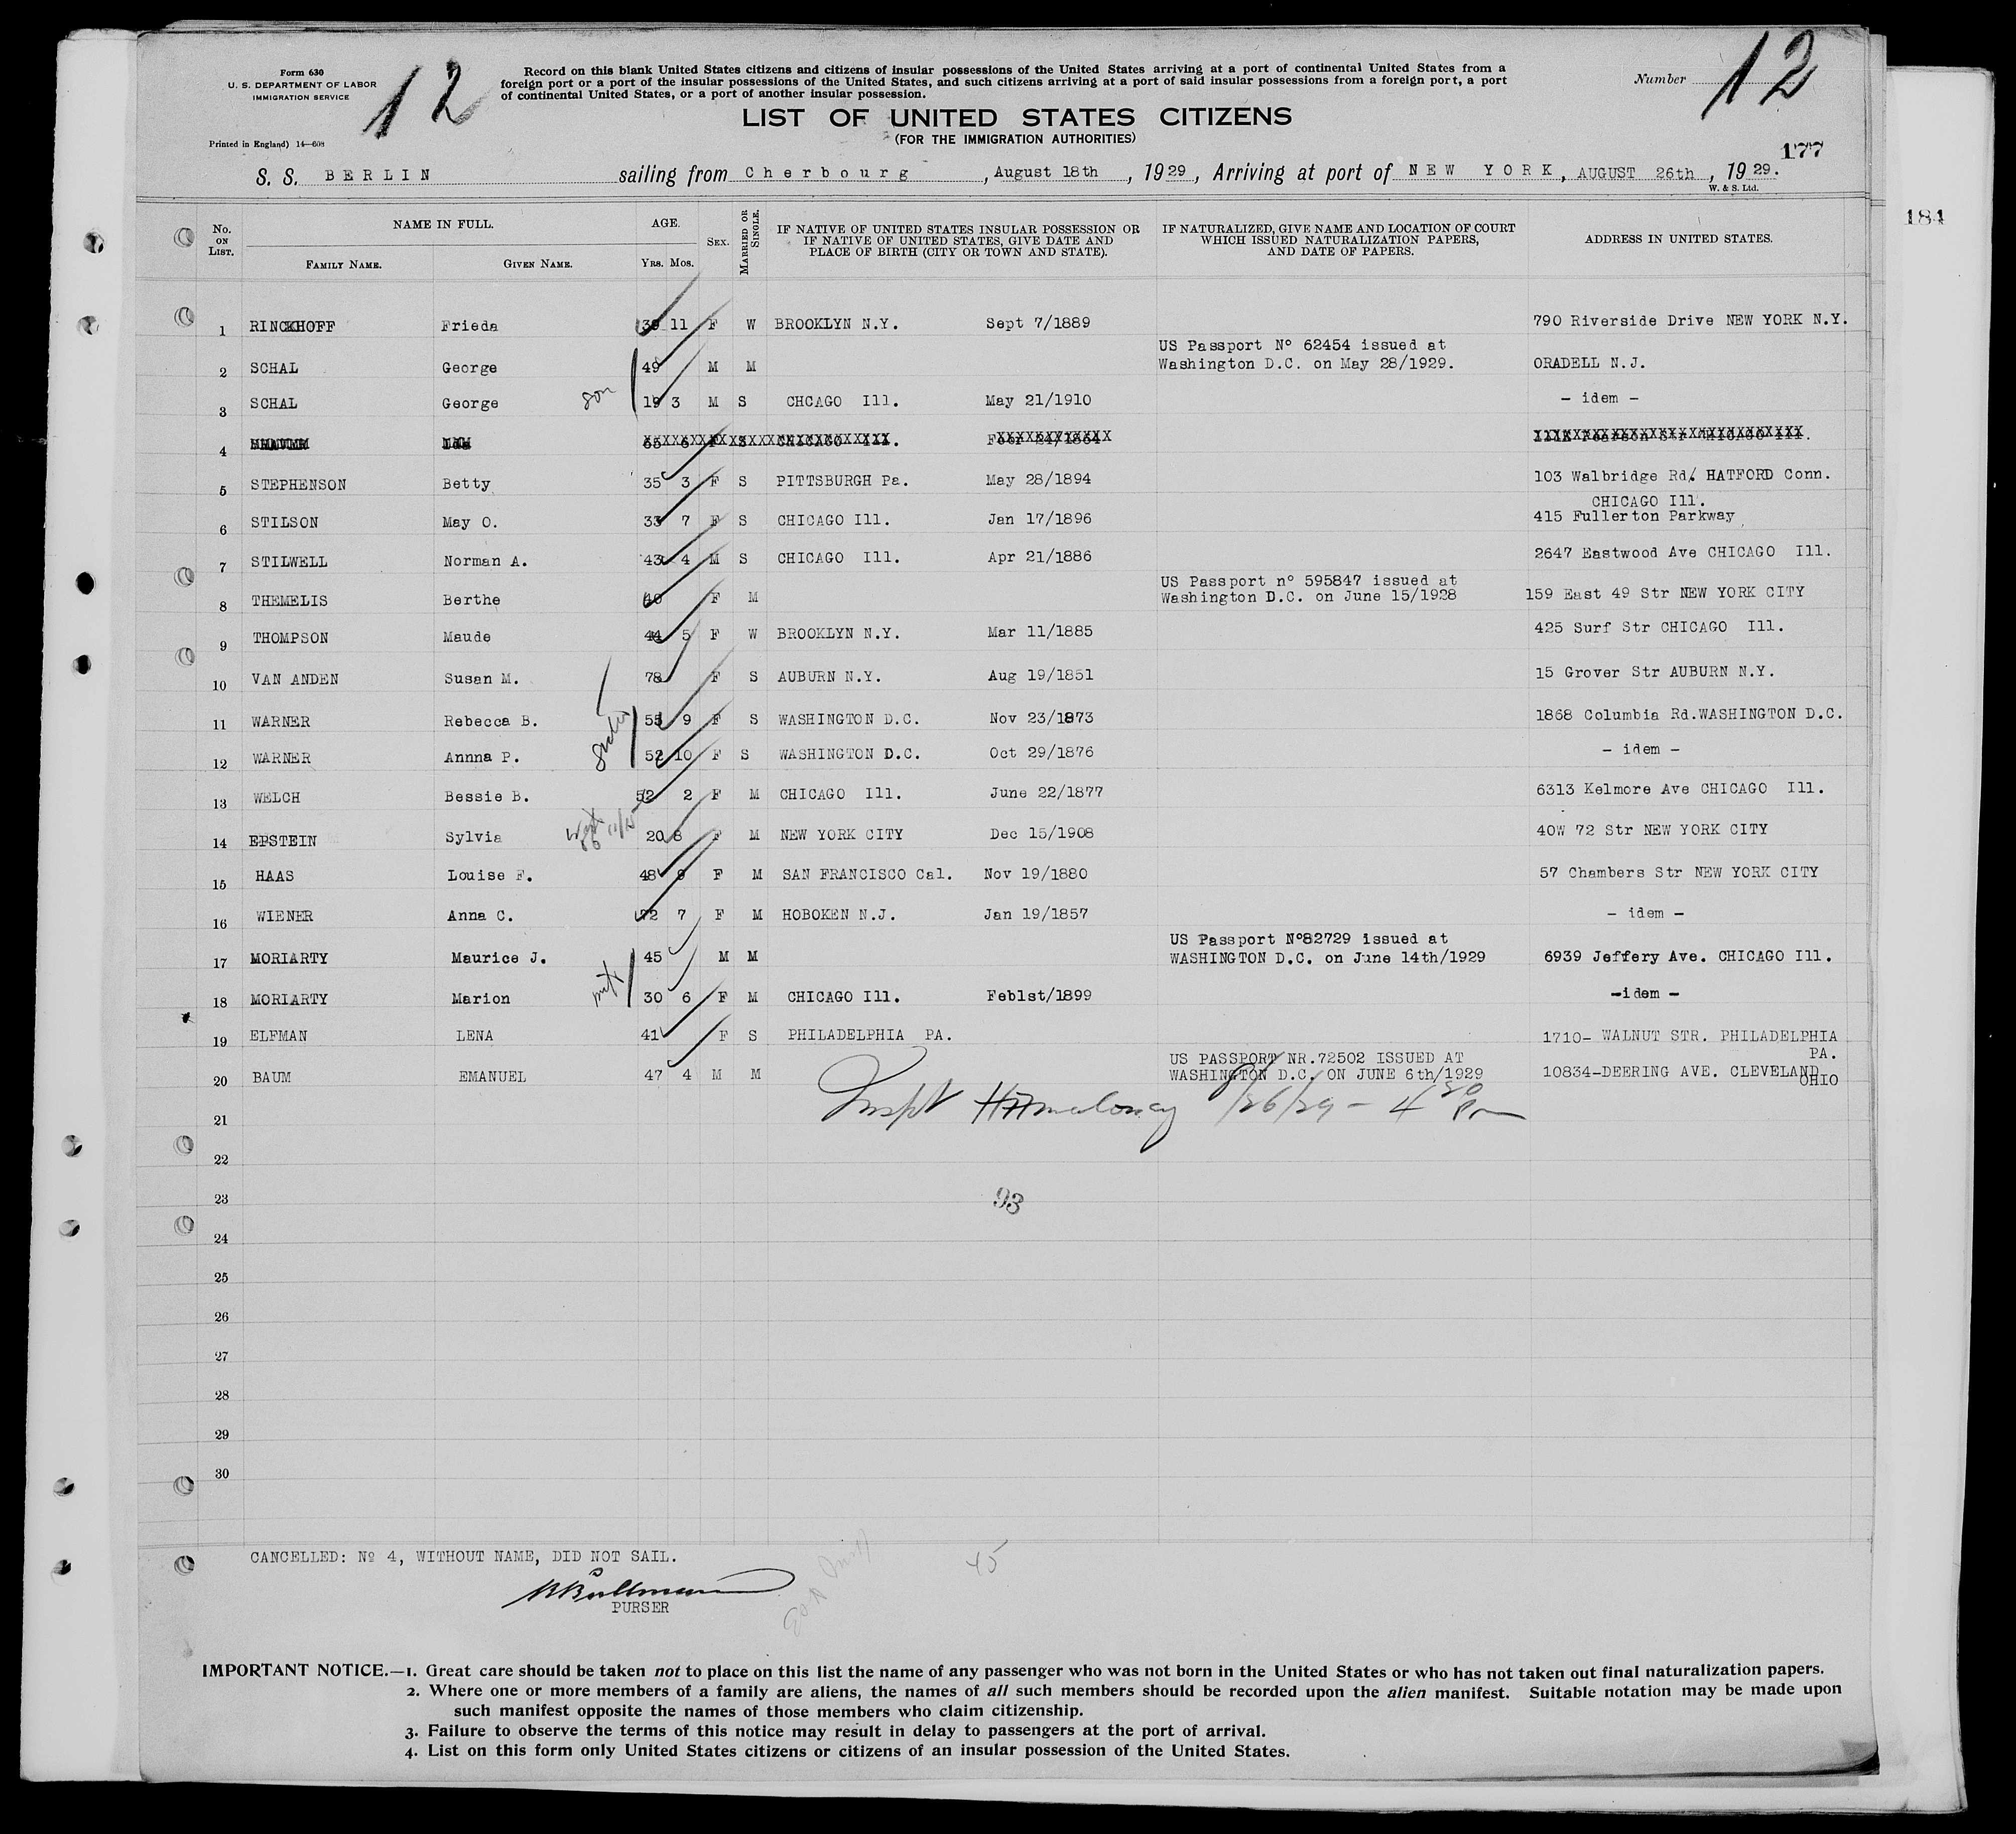 Form 630
U. S. DEPARTMENT OF LABOR
IMMIGRATION SERVICE
12
Record on this blank United States citizens and citizens of insular possessions of the United States arriving at a port of continental United States from a
foreign port or a port of the insular possessions of the United States, and such citizens arriving at a port of said insular possessions from a foreign port, a port
of continental United States, or a port of another insular possession.
Number 12
LIST OF UNITED STATES CITIZENS
(FOR THE IMMIGRATION AUTHORITIES)
Printed in England) 14—608
177
S. S. BERLIN sailing from Cherbourg, August 18th, 1929, Arriving at port of NEW YORK, AUGUST 26th, 1929.
W. & S. Ltd.
184
No. ON LIST. NAME IN FULL. AGE. SEX. MARRIED OR SINGLE. IF NATIVE OF UNITED STATES INSULAR POSSESSION OR IF NATIVE OF UNITED STATES, GIVE DATE AND PLACE OF BIRTH (CITY OR TOWN AND STATE). IF NATURALIZED, GIVE NAME AND LOCATION OF COURT WHICH ISSUED NATURALIZATION PAPERS, AND DATE OF PAPERS. ADDRESS IN UNITED STATES.
FAMILY NAME. GIVEN NAME. YRS. MOS.
1 RINCKHOFF Frieda 39 11 F W BROOKLYN N.Y. Sept 7/1889 790 Riverside Drive NEW YORK N.Y.
2 SCHAL George 49 M M US Passport Nº 62454 issued at Washington D.C. on May 28/1929. ORADELL N.J.
3 SCHAL George son 19 3 M S CHCAGO Ill. May 21/1910 - idem -
4
5 STEPHENSON Betty 35 3 F S PITTSBURGH Pa. May 28/1894 103 Walbridge Rd. HATFORD Conn.
6 STILSON May O. 33 7 F S CHICAGO Ill. Jan 17/1896 CHICAGO Ill. 415 Fullerton Parkway
7 STILWELL Norman A. 43 4 M S CHICAGO Ill. Apr 21/1886 2647 Eastwood Ave CHICAGO Ill.
8 THEMELIS Berthe 40 F M US Passport nº 595847 issued at Washington D.C. on June 15/1928 159 East 49 Str NEW YORK CITY
9 THOMPSON Maude 44 5 F W BROOKLYN N.Y. Mar 11/1885 425 Surf Str CHICAGO Ill.
10 VAN ANDEN Susan M. 78 F S AUBURN N.Y. Aug 19/1851 15 Grover Str AUBURN N.Y.
11 WARNER Rebecca B. 55 9 F S WASHINGTON D.C. Nov 23/1873 1868 Columbia Rd.WASHINGTON D.C.
12 WARNER Annna P. 52 10 F S WASHINGTON D.C. Oct 29/1876 - idem -
13 WELCH Bessie B. 52 2 F M CHICAGO Ill. June 22/1877 6313 Kelmore Ave CHICAGO Ill.
14 EPSTEIN Sylvia 20 8 F M NEW YORK CITY Dec 15/1908 40W 72 Str NEW YORK CITY
15 HAAS Louise F. 48 9 F M SAN FRANCISCO Cal. Nov 19/1880 57 Chambers Str NEW YORK CITY
16 WIENER Anna C. 72 7 F M HOBOKEN N.J. Jan 19/1857 - idem -
17 MORIARTY Maurice J. 45 M M US Passport Nº82729 issued at WASHINGTON D.C. on June 14th/1929 6939 Jeffery Ave. CHICAGO Ill.
18 MORIARTY Marion 30 6 F M CHICAGO Ill. Feb1st/1899 -idem -
19 ELFMAN LENA 41 F S PHILADELPHIA PA. 1710- WALNUT STR. PHILADELPHIA PA.
20 BAUM EMANUEL 47 4 M M US PASSPORT NR.72502 ISSUED AT WASHINGTON D.C. ON JUNE 6th/1929 10834-DEERING AVE. CLEVELAND OHIO
21 Inspt Maloney 8/26/29 - 4 30 Pm
22
23 93
24
25
26
27
28
29
30
CANCELLED: Nº 4, WITHOUT NAME, DID NOT SAIL.
45
PURSER
IMPORTANT NOTICE.—1. Great care should be taken not to place on this list the name of any passenger who was not born in the United States or who has not taken out final naturalization papers.
2. Where one or more members of a family are aliens, the names of all such members should be recorded upon the alien manifest. Suitable notation may be made upon
such manifest opposite the names of those members who claim citizenship.
3. Failure to observe the terms of this notice may result in delay to passengers at the port of arrival.
4. List on this form only United States citizens or citizens of an insular possession of the United States.